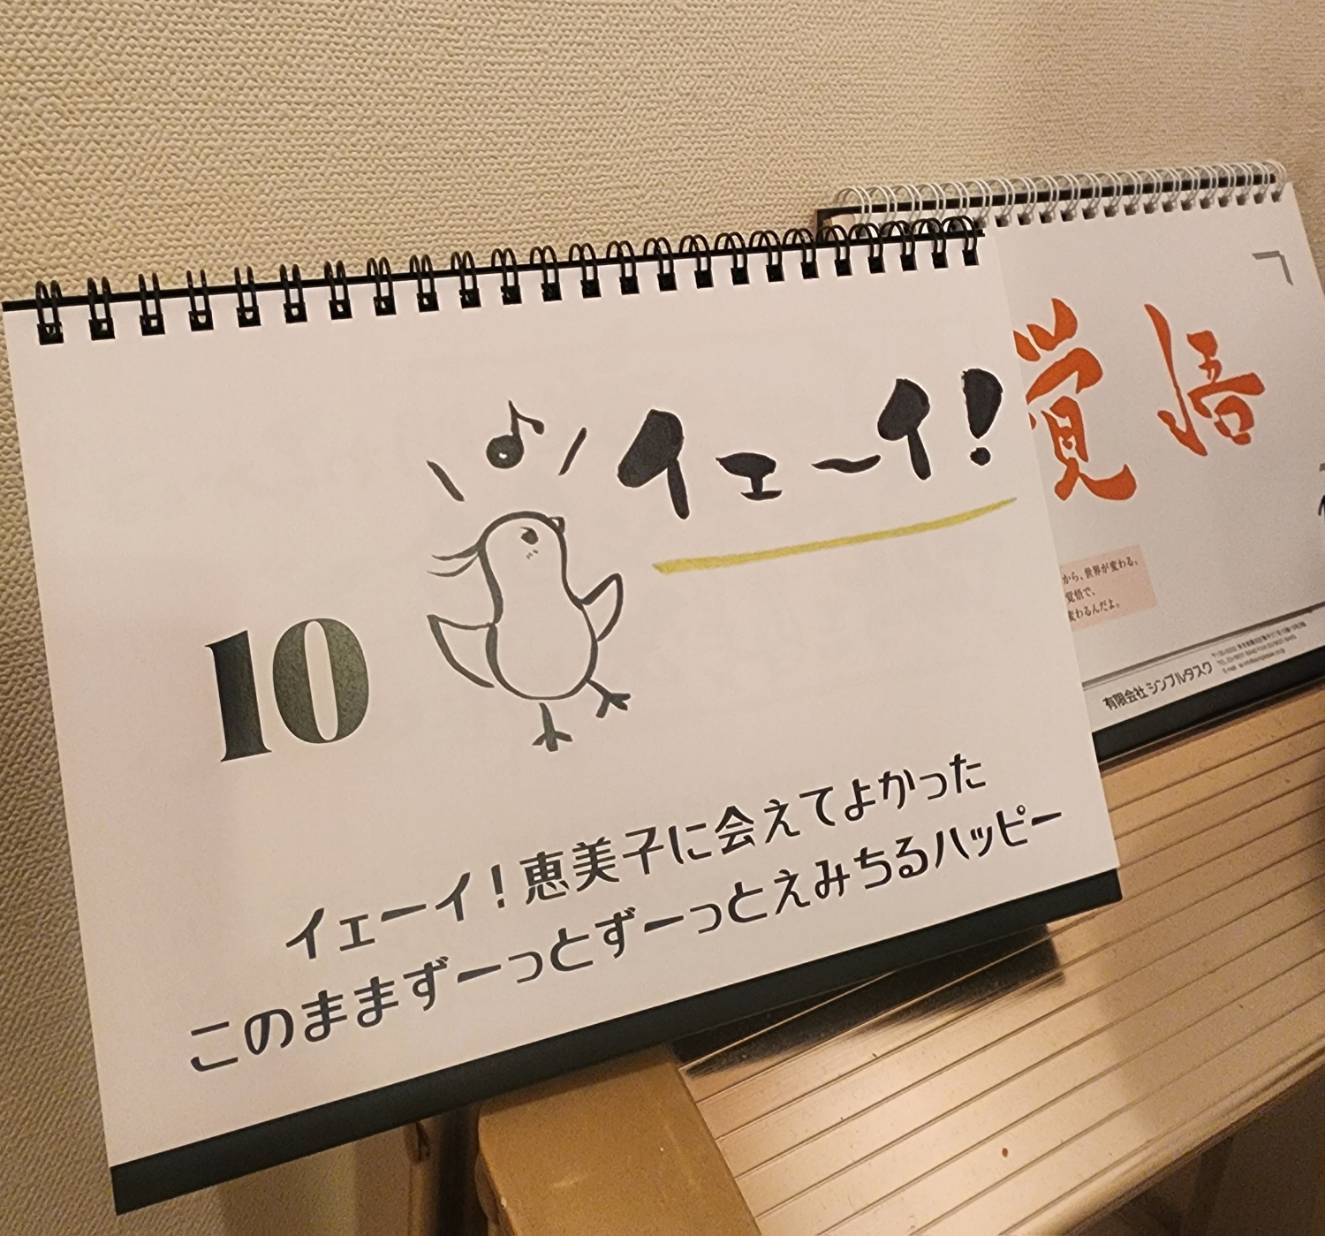 イェーイ!
10
イェーイ!恵美子に会えてよかった
このままずーっとずーっとえみちるハッピー
覚悟
から、世界が変わる。
覚悟で、
変わるんだよ。
有限会社シンプルタスク